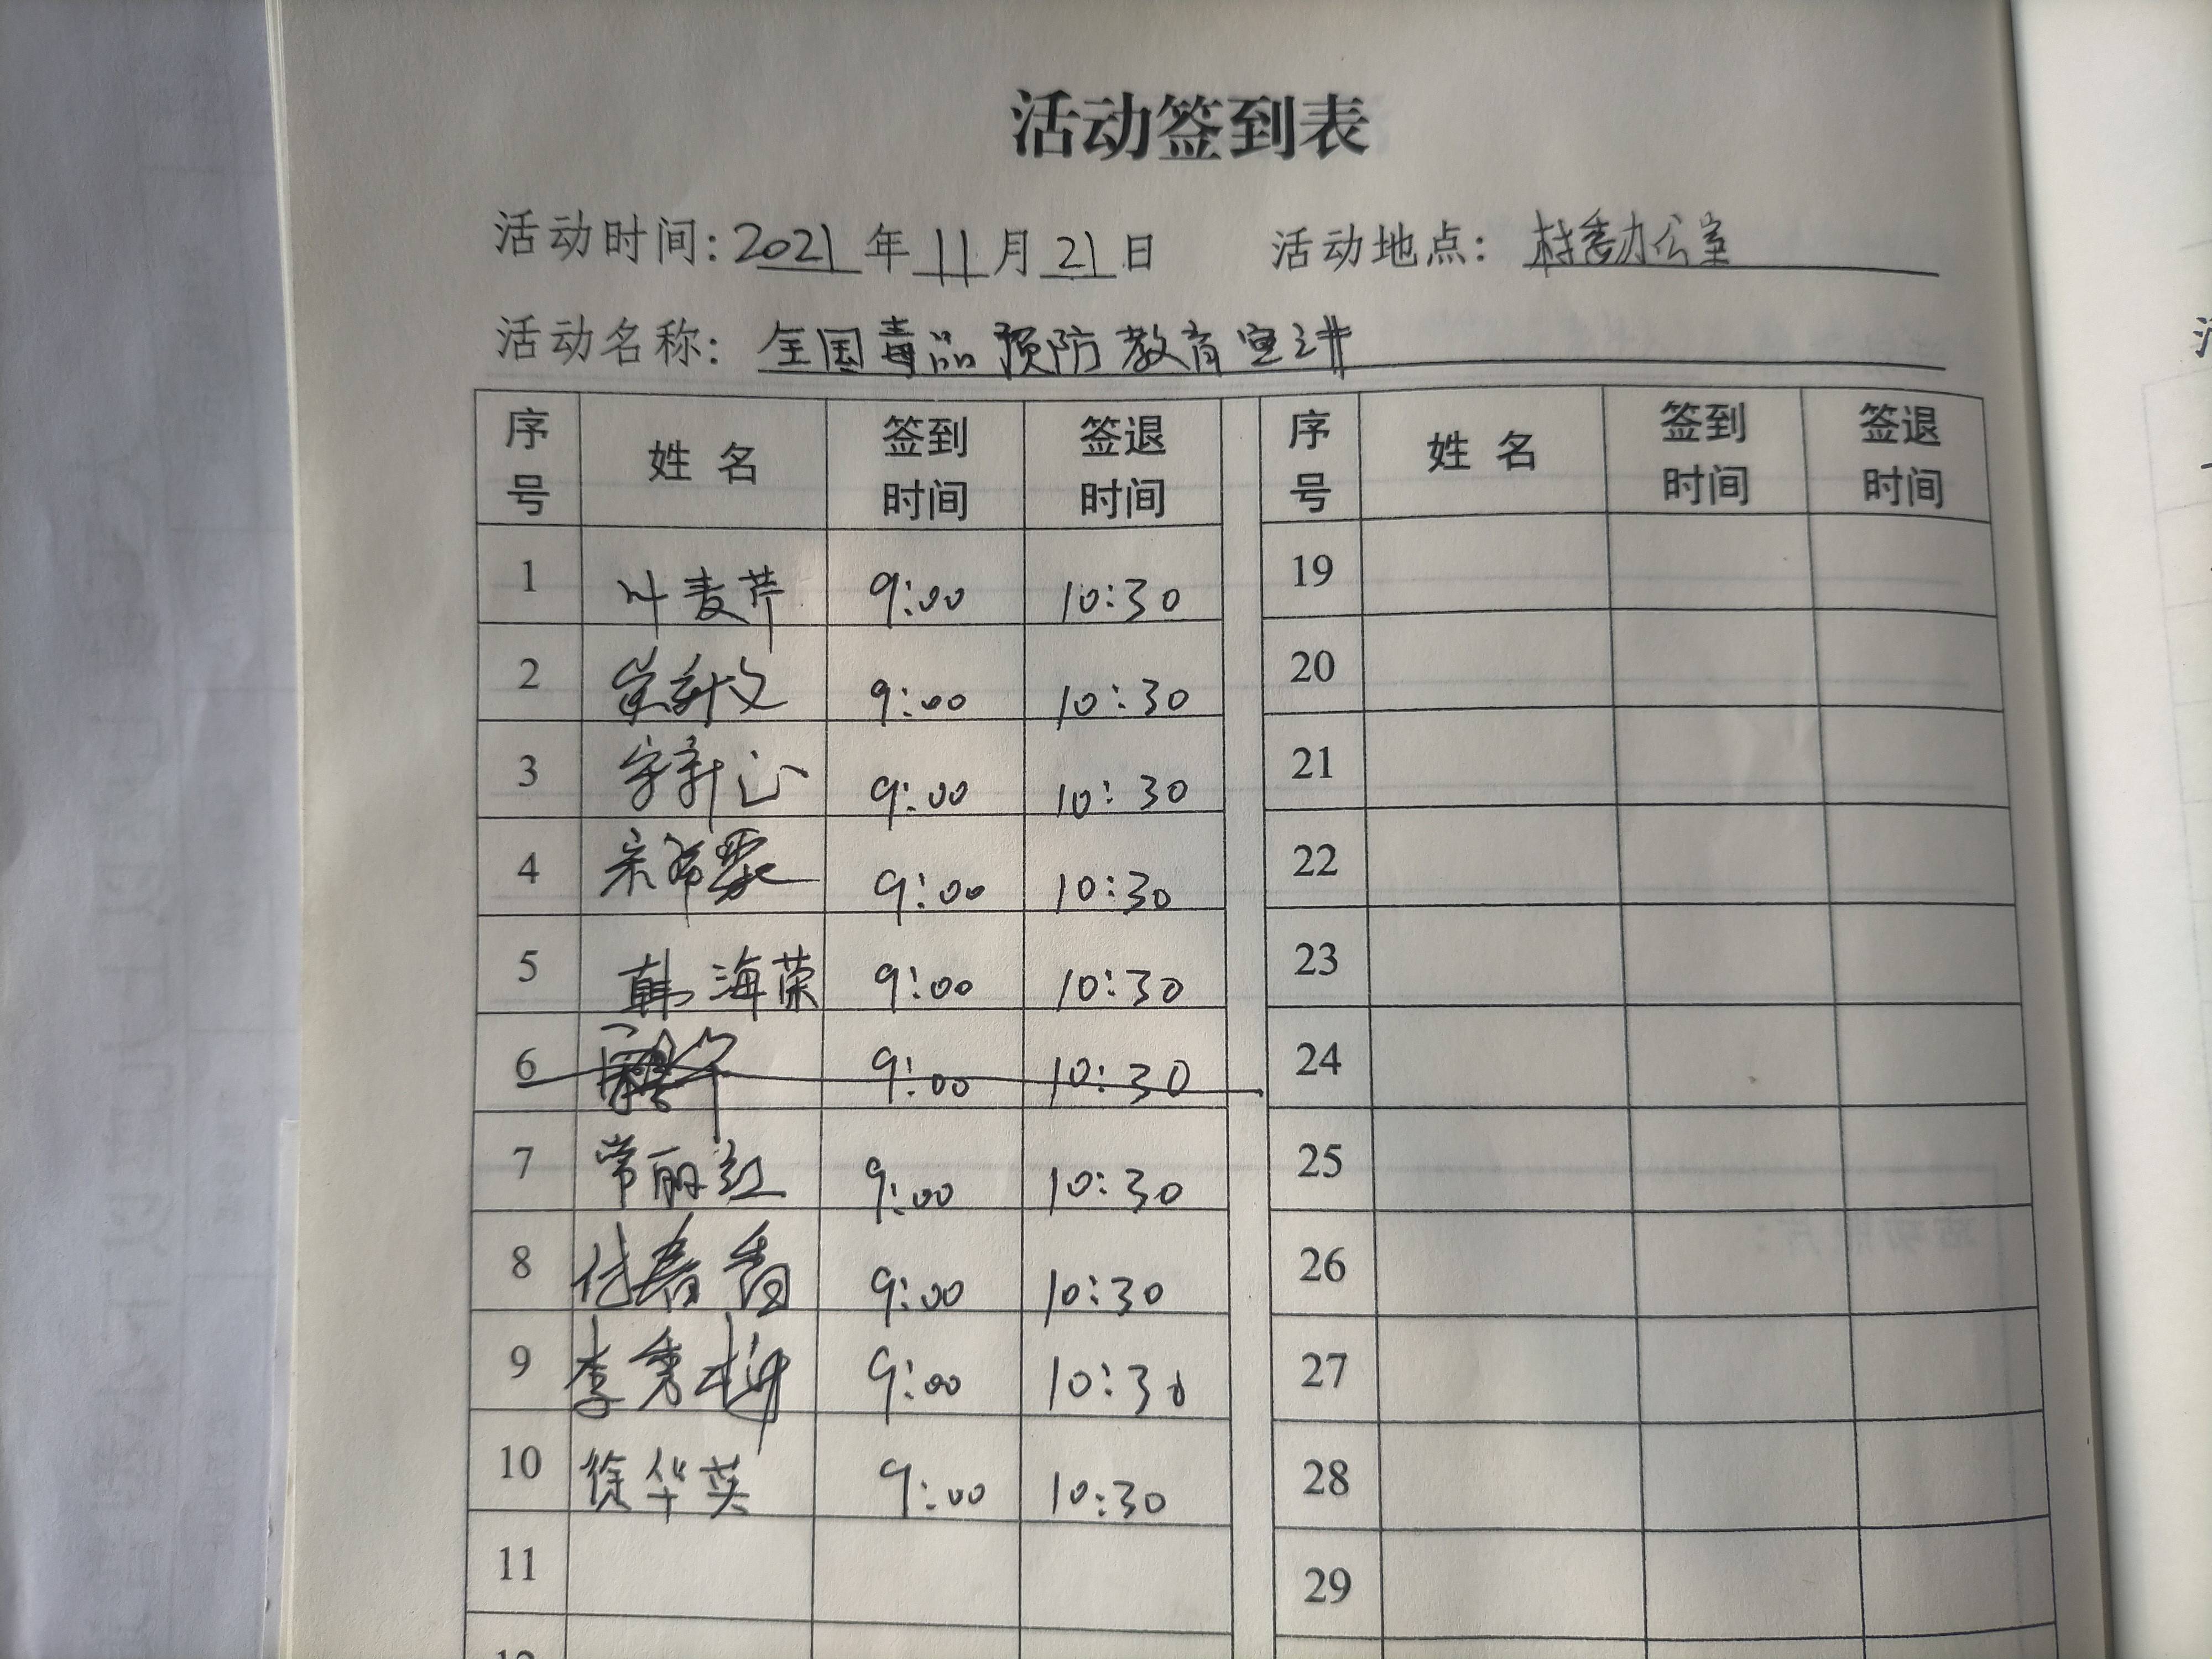 活动签到表
活动时间：2021年11月21日 活动地点：村委办公室
活动名称：全国毒品预防教育宣讲
序号 姓名 签到时间 签退时间 序号 姓名 签到时间 签退时间
1 叶麦芹 9:00 10:30 19
2 9:00 10:30 20
3 9:00 10:30 21
4 9:00 10:30 22
5 韩海荣 9:00 10:30 23
6 9:00 10:30 24
7 常丽红 9:00 10:30 25
8 付春香 9:00 10:30 26
9 李秀柳 9:00 10:30 27
10 徐华英 9:00 10:30 28
11 29